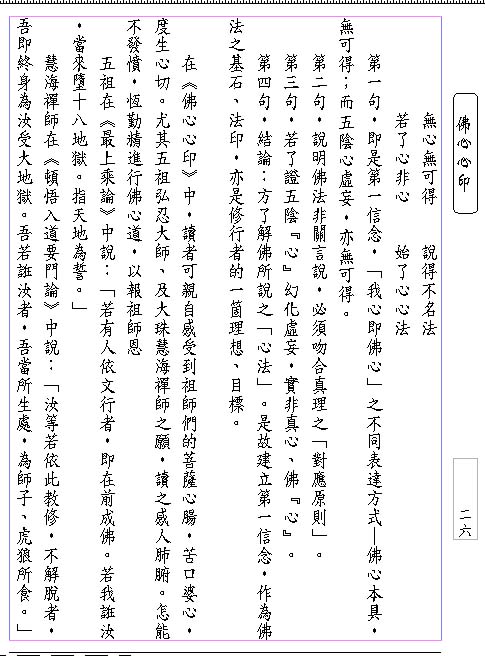 佛心心印
無心無可得　　說得不名法
若了心非心　　始了心心法
第一句，即是第一信念，「我心即佛心」之不同表達方式—佛心本具，
無可得；而五陰心虛妄，亦無可得。
第二句，說明佛法非關言說，必須吻合真理之「對應原則」。
第三句，若了證五陰『心』幻化虛妄，實非真心、佛『心』。
第四句，結論：方了解佛所說之「心法」。是故建立第一信念，作為佛
法之基石、法印，亦是修行者的一箇理想、目標。
在《佛心心印》中，讀者可親自感受到祖師們的菩薩心腸，苦口婆心，
度生心切。尤其五祖弘忍大師、及大珠慧海禪師之願，讀之感人肺腑。怎能
不發憤，恆勤精進行佛心道，以報祖師恩
五祖在《最上乘論》中說：「若有人依文行者，即在前成佛。若我誑汝
，當來墮十八地獄。指天地為誓。」
慧海禪師在《頓悟入道要門論》中說：「汝等若依此教修，不解脫者，
吾即終身為汝受大地獄。吾若誑汝者，吾當所生處，為師子、虎狼所食。」
二六